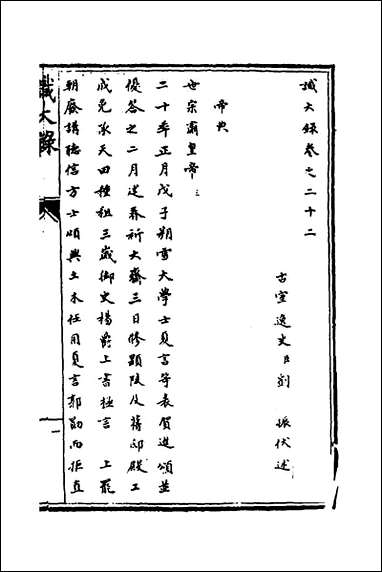 識大錄卷之二十二
古宣逸史臣劉 振伏述
帝典
世宗肅皇帝三
二十年正月戊子朔雪大學士夏言等表賀進頌並
優答之二月建春祈大齋三日修顯陵及舊邸殿工
成免承天田種租三歲御史楊爵上書極言 上罷
朝廢講聽信方士頌興土木任用夏言郭勛而拒直
識大錄